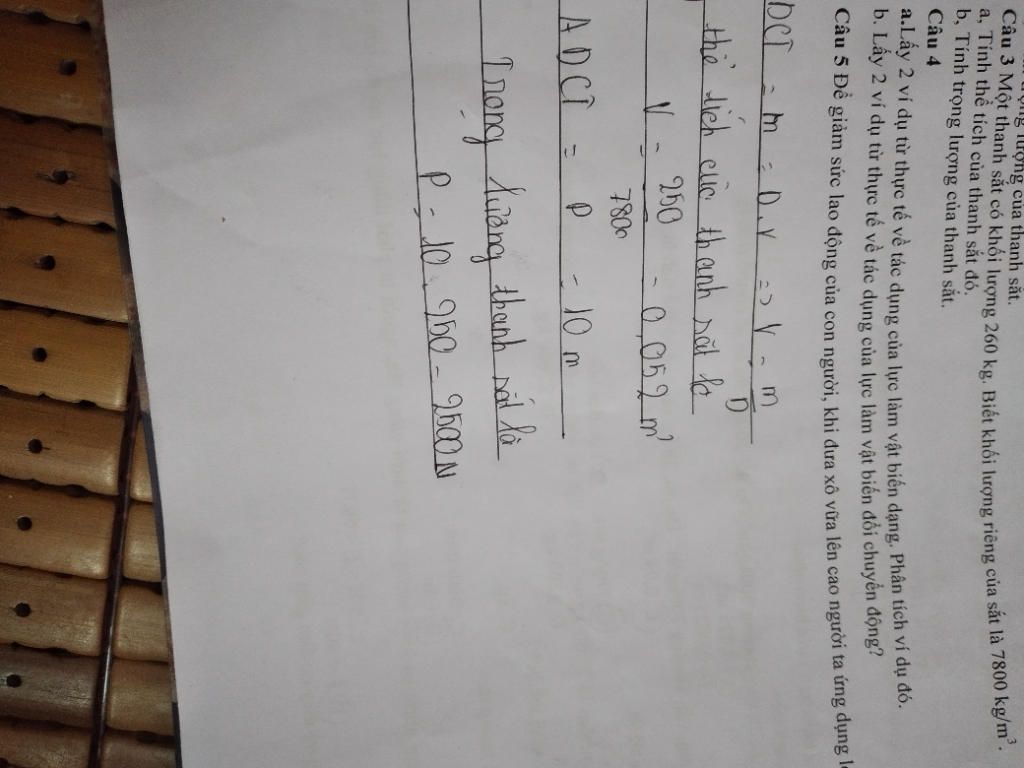 lượng của thanh sắt.
Câu 3 Một thanh sắt có khối lượng 260 kg. Biết khối lượng riêng của sắt là 7800 kg/m³.
a, Tính thể tích của thanh sắt đó.
b, Tính trọng lượng của thanh sắt.
Câu 4
a.Lấy 2 ví dụ từ thực tế về tác dụng của lực làm vật biến dạng. Phân tích ví dụ đó.
b, Lấy 2 ví dụ từ thực tế về tác dụng của lực làm vật biến đổi chuyển động?
Câu 5 Để giảm sức lao động của con người, khi đưa xô vữa lên cao người ta ứng dụng
DCT = m = D.V => V = m/D
thể tích của thanh sắt là
V = 250/7800 = 0,052 m³
ADCT = P = 10 m
Trong lượng thanh sắt là
P = 10. 250 = 2500N